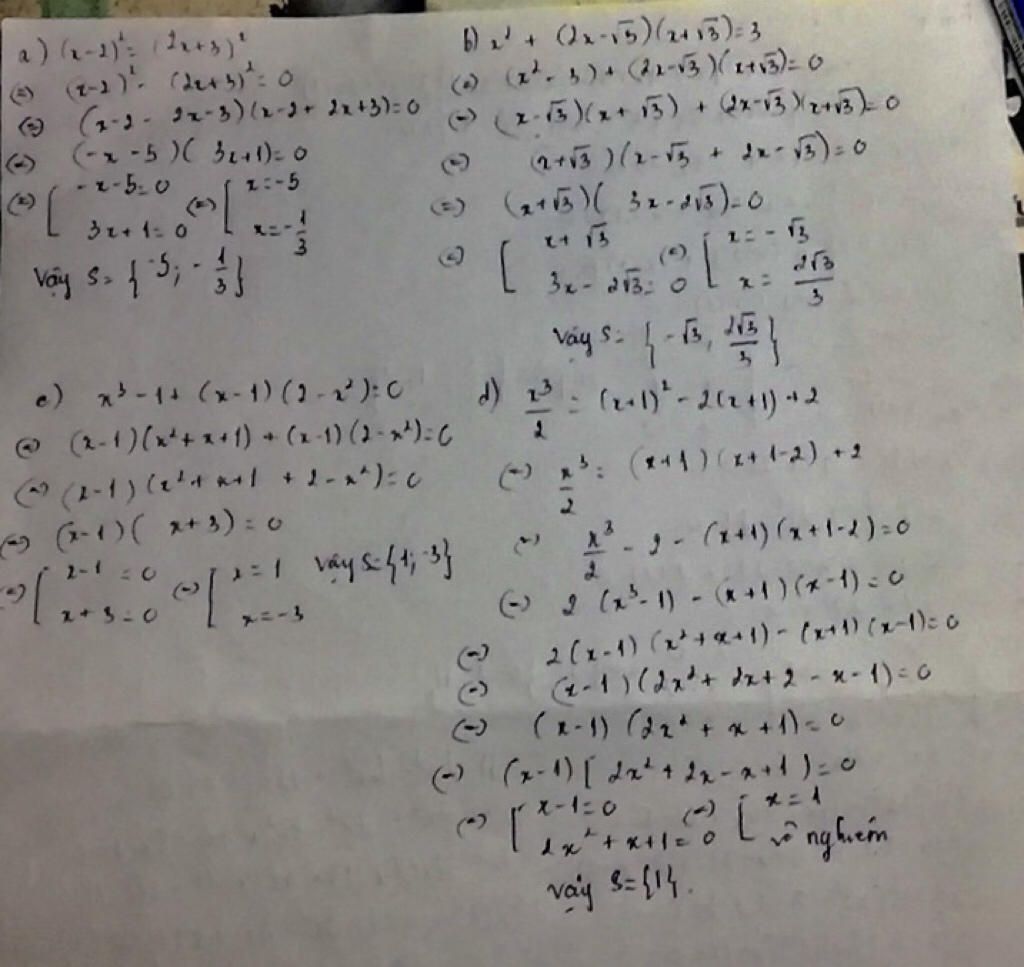 a) (x-2)² = (2x+3)²
(=) (x-2)² - (2x+3)² = 0
(=) (x-2 - 2x-3)(x-2+ 2x+3)=0
(=) (-x -5)( 3x+1)=0
(=) [ -x-5=0 (=) [ x=-5
3x+1=0 x=-1/3
Vậy S= {-5; -1/3}
b) x² + (2x-√3)(x+√3)=3
(=) (x² - 3) + (2x-√3)(x+√3)=0
(=) (x-√3)(x+√3) + (2x-√3)(x+√3)=0
(=) (x+√3)(x-√3 + 2x-√3)=0
(=) (x+√3)( 3x-2√3)=0
(=) [ x+√3 (=) [ x=-√3
3x-2√3=0 x= 2√3/3
Vậy S= {-√3, 2√3/3}
c) x³-1+ (x-1)(2-x²)=0
(=) (x-1)(x²+x+1)+(x-1)(2-x²)=0
(=) (x-1)(x²+x+1 +2-x²)=0
(=) (x-1)( x+3)=0
(=) [ x-1 =0 (=) [ x=1 Vậy S={1;-3}
x+3=0 x=-3
d) x³/2 = (x+1)² - 2(x+1)+2
(=) x³/2 = (x+1)(x+1-2)+2
(=) x³/2 - 2 - (x+1)(x+1-2)=0
(=) 2(x³-1) - (x+1)(x-1)=0
(=) 2(x-1)(x²+x+1) - (x+1)(x-1)=0
(=) (x-1)(2x²+2x+2-x-1)=0
(=) (x-1)(2x²+x+1)=0
(=) (x-1)[2x²+2x-x+1)=0
(=) [ x-1=0 (=) [ x=1
2x²+x+1=0 vô nghiệm
Vậy S={1}.